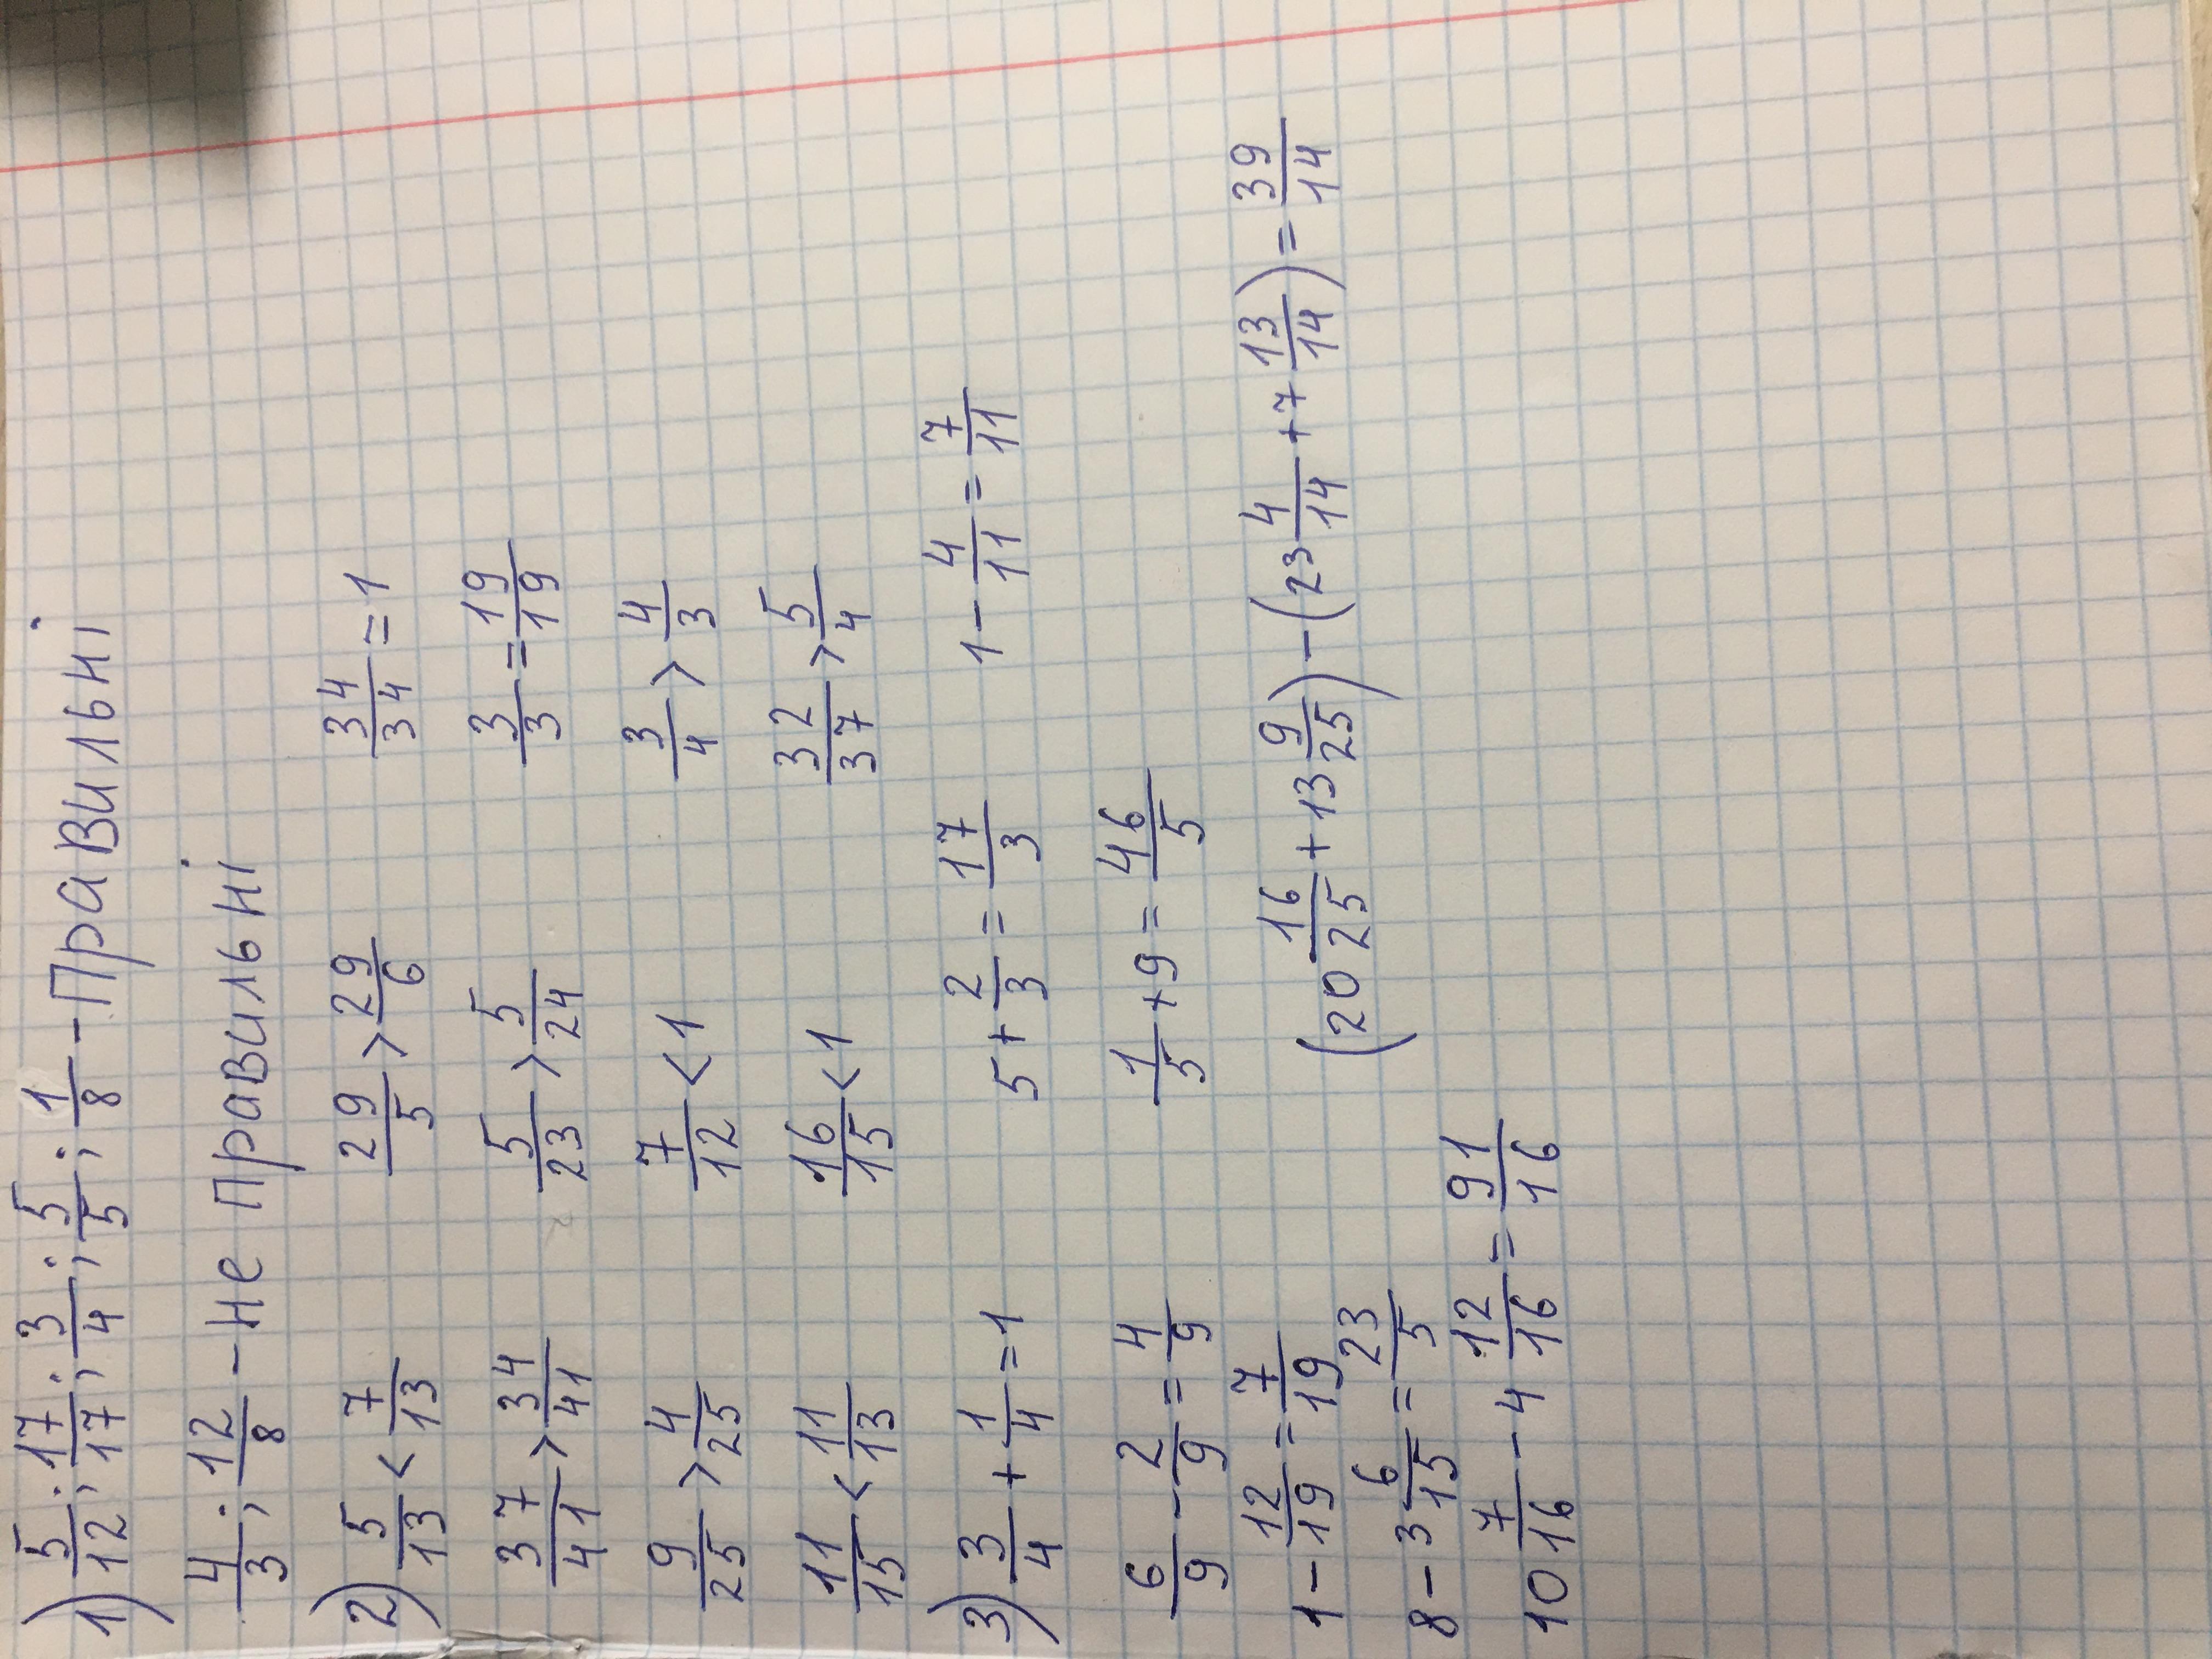 1) 5/12; 17/17; 3/4; 5/5; 1/8 - Правильні
4/3; 12/8 - не Правильні
2) 5/13 < 7/13 29/5 > 29/6 34/34 = 1
37/41 > 34/41 5/23 > 5/24 3/3 = 19/19
9/25 > 4/25 7/12 < 1 3/4 > 4/3
11/15 < 11/13 16/15 < 1 32/37 > 5/4
3) 3/4 + 1/4 = 1 5 + 2/3 = 17/3 1 - 4/11 = 7/11
6/9 - 2/9 = 4/9 1/5 + 9 = 46/5
1 - 12/19 = 7/19 (20 16/25 + 13 9/25) - (23 4/14 + 7 13/14) = 39/14
8 - 3 6/15 = 23/5
10 7/16 - 4 12/16 = 91/16